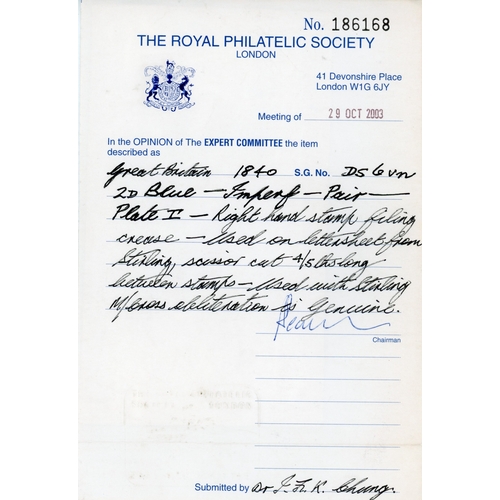 No. 186168
THE ROYAL PHILATELIC SOCIETY
LONDON
41 Devonshire Place
London W1G 6JY
Meeting of 29 OCT 2003
In the OPINION of The EXPERT COMMITTEE the item
described as
Great Britain 1840 S.G. No. DS6vn
2D Blue - Imperf - Pair -
Plate I - Right hand stamp filing
crease - Used on lettersheet from
Stirling, scissor cut 4/5ths long
between stamps - Used with Stirling
M/Cross obliteration is genuine.
Chairman
Submitted by Dr Chung.